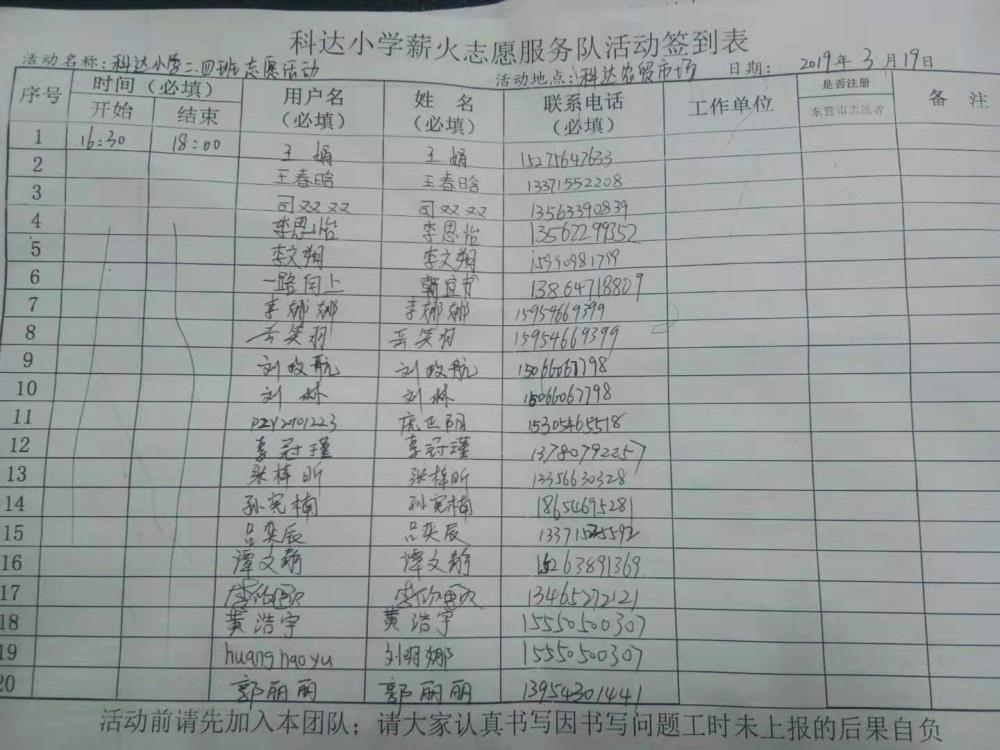 科达小学薪火志愿服务队活动签到表
活动名称:科达小学二.四班志愿活动 活动地点:科达农贸市场 日期: 2019年3月19日
序号 时间(必填) 用户名(必填) 姓名(必填) 联系电话(必填) 工作单位 是否注册东营市志愿者 备注
开始 结束
1 16:30 18:00 王娟 王娟 15275647633
2 王春晗 王春晗 13371552208
3 司双双 司双双 13563390839
4 李思怡 李思怡 13562299352
5 李文翔 李文翔 15990981799
6 一路向上 13864718809
7 李娜娜 李娜娜 15954669399
8 岳笑羽 岳笑羽 15954669399
9 刘政航 刘政航 15066067798
10 刘林 刘林 15066067798
11 PZY2101223 庞正阳 15305465518
12 李冠瑾 李冠瑾 13780792257
13 张梓昕 张梓昕 13356630328
14 孙宪楠 孙宪楠 18654695281
15 吕奕辰 吕奕辰
16 谭文静 谭文静 15263891369
17 13465272121
18 黄浩宇 黄浩宇 15550500307
19 huanghaoyu 刘明娜 15550500307
20 郭丽丽 郭丽丽 13954301441
活动前请先加入本团队;请大家认真书写因书写问题工时未上报的后果自负